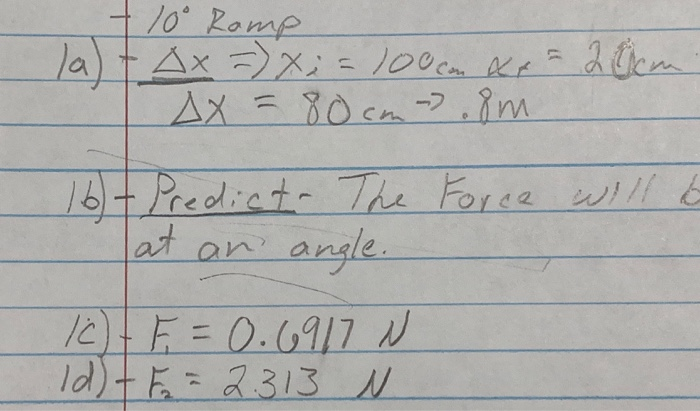 - 10° Ramp
1a) - Δx => xi = 100cm xf = 20cm
Δx = 80cm -> .8m
1b) - Predict - The Force will
at an angle.
1c) - F1 = 0.6917 N
1d) - F2 = 2.313 N